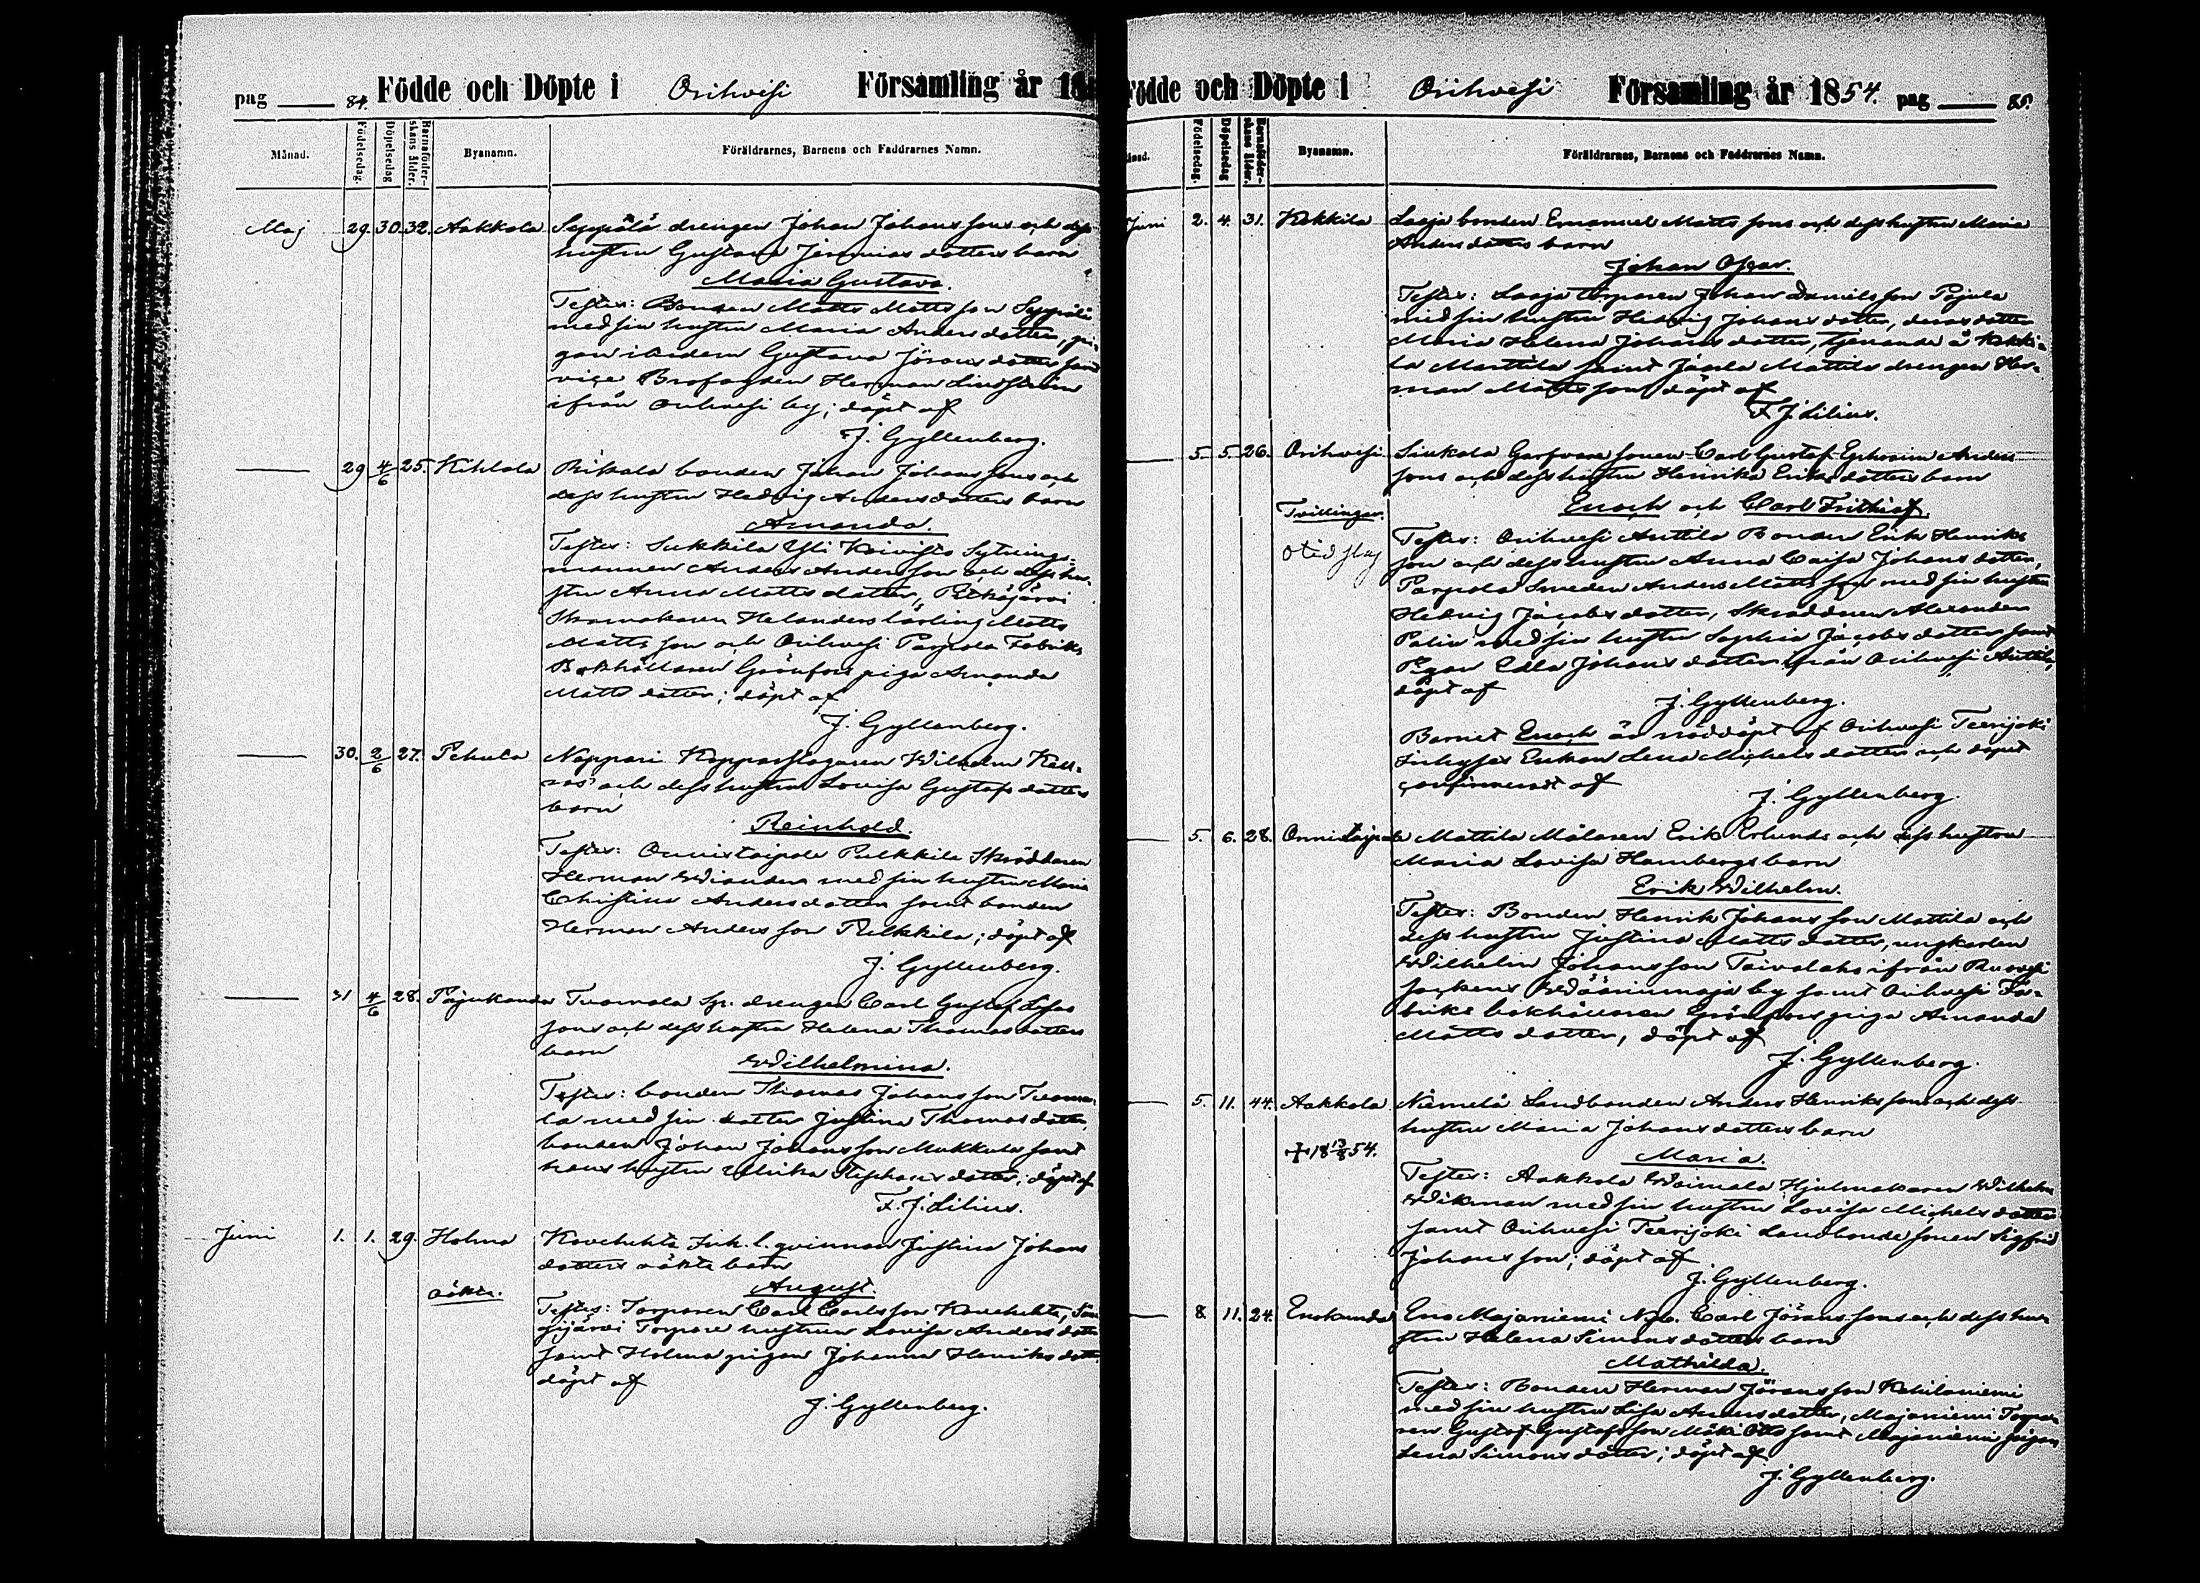 pag 84. Födde och Döpte i Orihvesi Församling år 18
Månad. Födelsedag. Döpelsedag Barnaföder-skans ålder. Bynamn. Föräldrarnes, Barnens och Faddrarnes Namn.
Maj 29. 30. 32. Aakkola Seppälä drengen Johan Johans sons och dess
hustru Gustava Jeremias dotters barn
Maria Gustava.
Testes: Bonden Matts Mattsson Seppälä
med sin hustru Maria Anders dotter, pi-
gan ibidem Gustava Jörans dotter samt
vice Brofogden Herman Lindström
ifrån Orihvesi by; döpt af
J. Gyllenberg.
29 4/6 25. Kihlola Rikala bonden Johan Johans sons och
dess hustru Hedvig Anders dotters barn
Amanda.
Testes: Sukkila Yli Knivistö Sytnings-
mannen Anders Andersson och dess hu-
stru Anna Matts dotter, Pitkäjärvi
Skomakaren Helanders lärling Matts
Matts son och Orihvesi Pappila Fabriks
Bokhållaren Grönfors piga Amanda
Matts dotter; döpt af
J. Gyllenberg.
30. 2/6 27. Pehula Nappari Kopparslagaren Wilhelm Kell-
ros' och dess hustru Lovisa Gustafs dotters
barn
Reinhold.
Testes: Onnistaipale Pulkkila Skräddaren
Herman Wiander med sin hustru Maria
Christina Anders dotter samt bonden
Herman Anders son Pulkkila; döpt af
J. Gyllenberg.
31 4/6 28. Pajukanda Tuomola Sp. drengen Carl Gustaf Esias
sons och dess hustru Helena Thomas dotters
barn
Wilhelmina.
Testes: bonden Thomas Johansson Tuomo-
la med sin dotter Justina Thomas dotter,
bonden Johan Johansson Mukkula samt
hans hustru Ulrika Stephans dotter; döpt af
F. J. Lilius.
Juni 1. 1. 29. Holma Kovelahti Inh. l. qvinnan Justina Johans
dotters oäkta barn
oäkta. August.
Testes: Torparen Carl Carlsson Kovelahti,
Torpare hustrun Lovisa Anders dott
samt Holma pigan Johanna Henriks dott
döpt af
J. Gyllenberg.
Födde och Döpte i Orihvesi Församling år 1854. pag 85.
Månad. Födelsedag. Döpelsedag Barnaföder-skans ålder. Bynamn. Föräldrarnes, Barnens och Faddrarnes Namn.
Juni 2. 4. 31. Kokkila Laeja bonden Emanuel Matts sons och dess hustru Maria
Anders dotters barn
Johan Oscar.
Testes: Laeja torparen Johan Danielsson Pajula
med sin hustru Hedvig Johans dotter, deras dotter
Maria Helena Johans dotter, tjenande å Kokki-
la Marttila samt Jämla Mattila drengen Her-
man Matts son; döpt af
F. J. Lilius.
5. 5. 26. Orihvesi Siukola Garfvare sonen Carl Gustaf Ephraim Anders
sons och dess hustru Henrika Eriks dotters barn
Tvillingar. Enoch och Carl Frithiof.
Testes: Orihvesi Anttila Bonden Erik Henriks
son och dess hustru Anna Caisa Johans dotter,
Pappila Smeden Anders Matts son med sin hustru
Hedvig Jacobs dotter, Skräddaren Alexander
Palin med sin hustru Sophia Jacobs dotter samt
Pigan Edla Johans dotter ifrån Orihvesi Anttila,
döpt af
J. Gyllenberg.
Barnet Enoch är nöddöpt af Orihvesi Teerijoki
Inhyses Enkan Lena Michels dotter och döpet
confirmerat af
J. Gyllenberg.
5. 6. 28. Onnistaipale Mattila Målaren Erik Erlunds och dess hustru
Maria Lovisa Hambergs barn
Erik Wilhelm.
Testes: Bonden Henrik Johans son Mattila och
dess hustru Justina Matts dotter, ungkarlen
Wilhelm Johansson Taivalahs ifrån Ruovesi
sockens Wäärinmaja by samt Orihvesi Fa-
briks bokhållaren Grönfors piga Amanda
Matts dotter, döpt af
J. Gyllenberg.
5. 11. 44. Aakkola Niemelä Landbonden Anders Henriks sons och dess
hustru Maria Johans dotters barn
+ 18 13/8 54. Maria.
Testes: Aakkola Waimala Hjulmakaren Wilhelm
Wikman med sin hustru Lovisa Michels dotter
samt Orihvesi Teerijoki Landbonde sonen Sigfrid
Johans son; döpt af
J. Gyllenberg.
8. 11. 24. Enokunda Eno Majaniemi Nyb. Carl Jörans sons och dess hu-
stru Helena Simons dotters barn
Mathilda.
Testes: Bonden Herman Jöransson Kokiloniemi
med sin hustru Lisa Anders dotter, Majaniemi Torpa-
ren Gustaf Gustafsson samt Majaniemi pigan
Lena Simons dotter; döpt af
J. Gyllenberg.